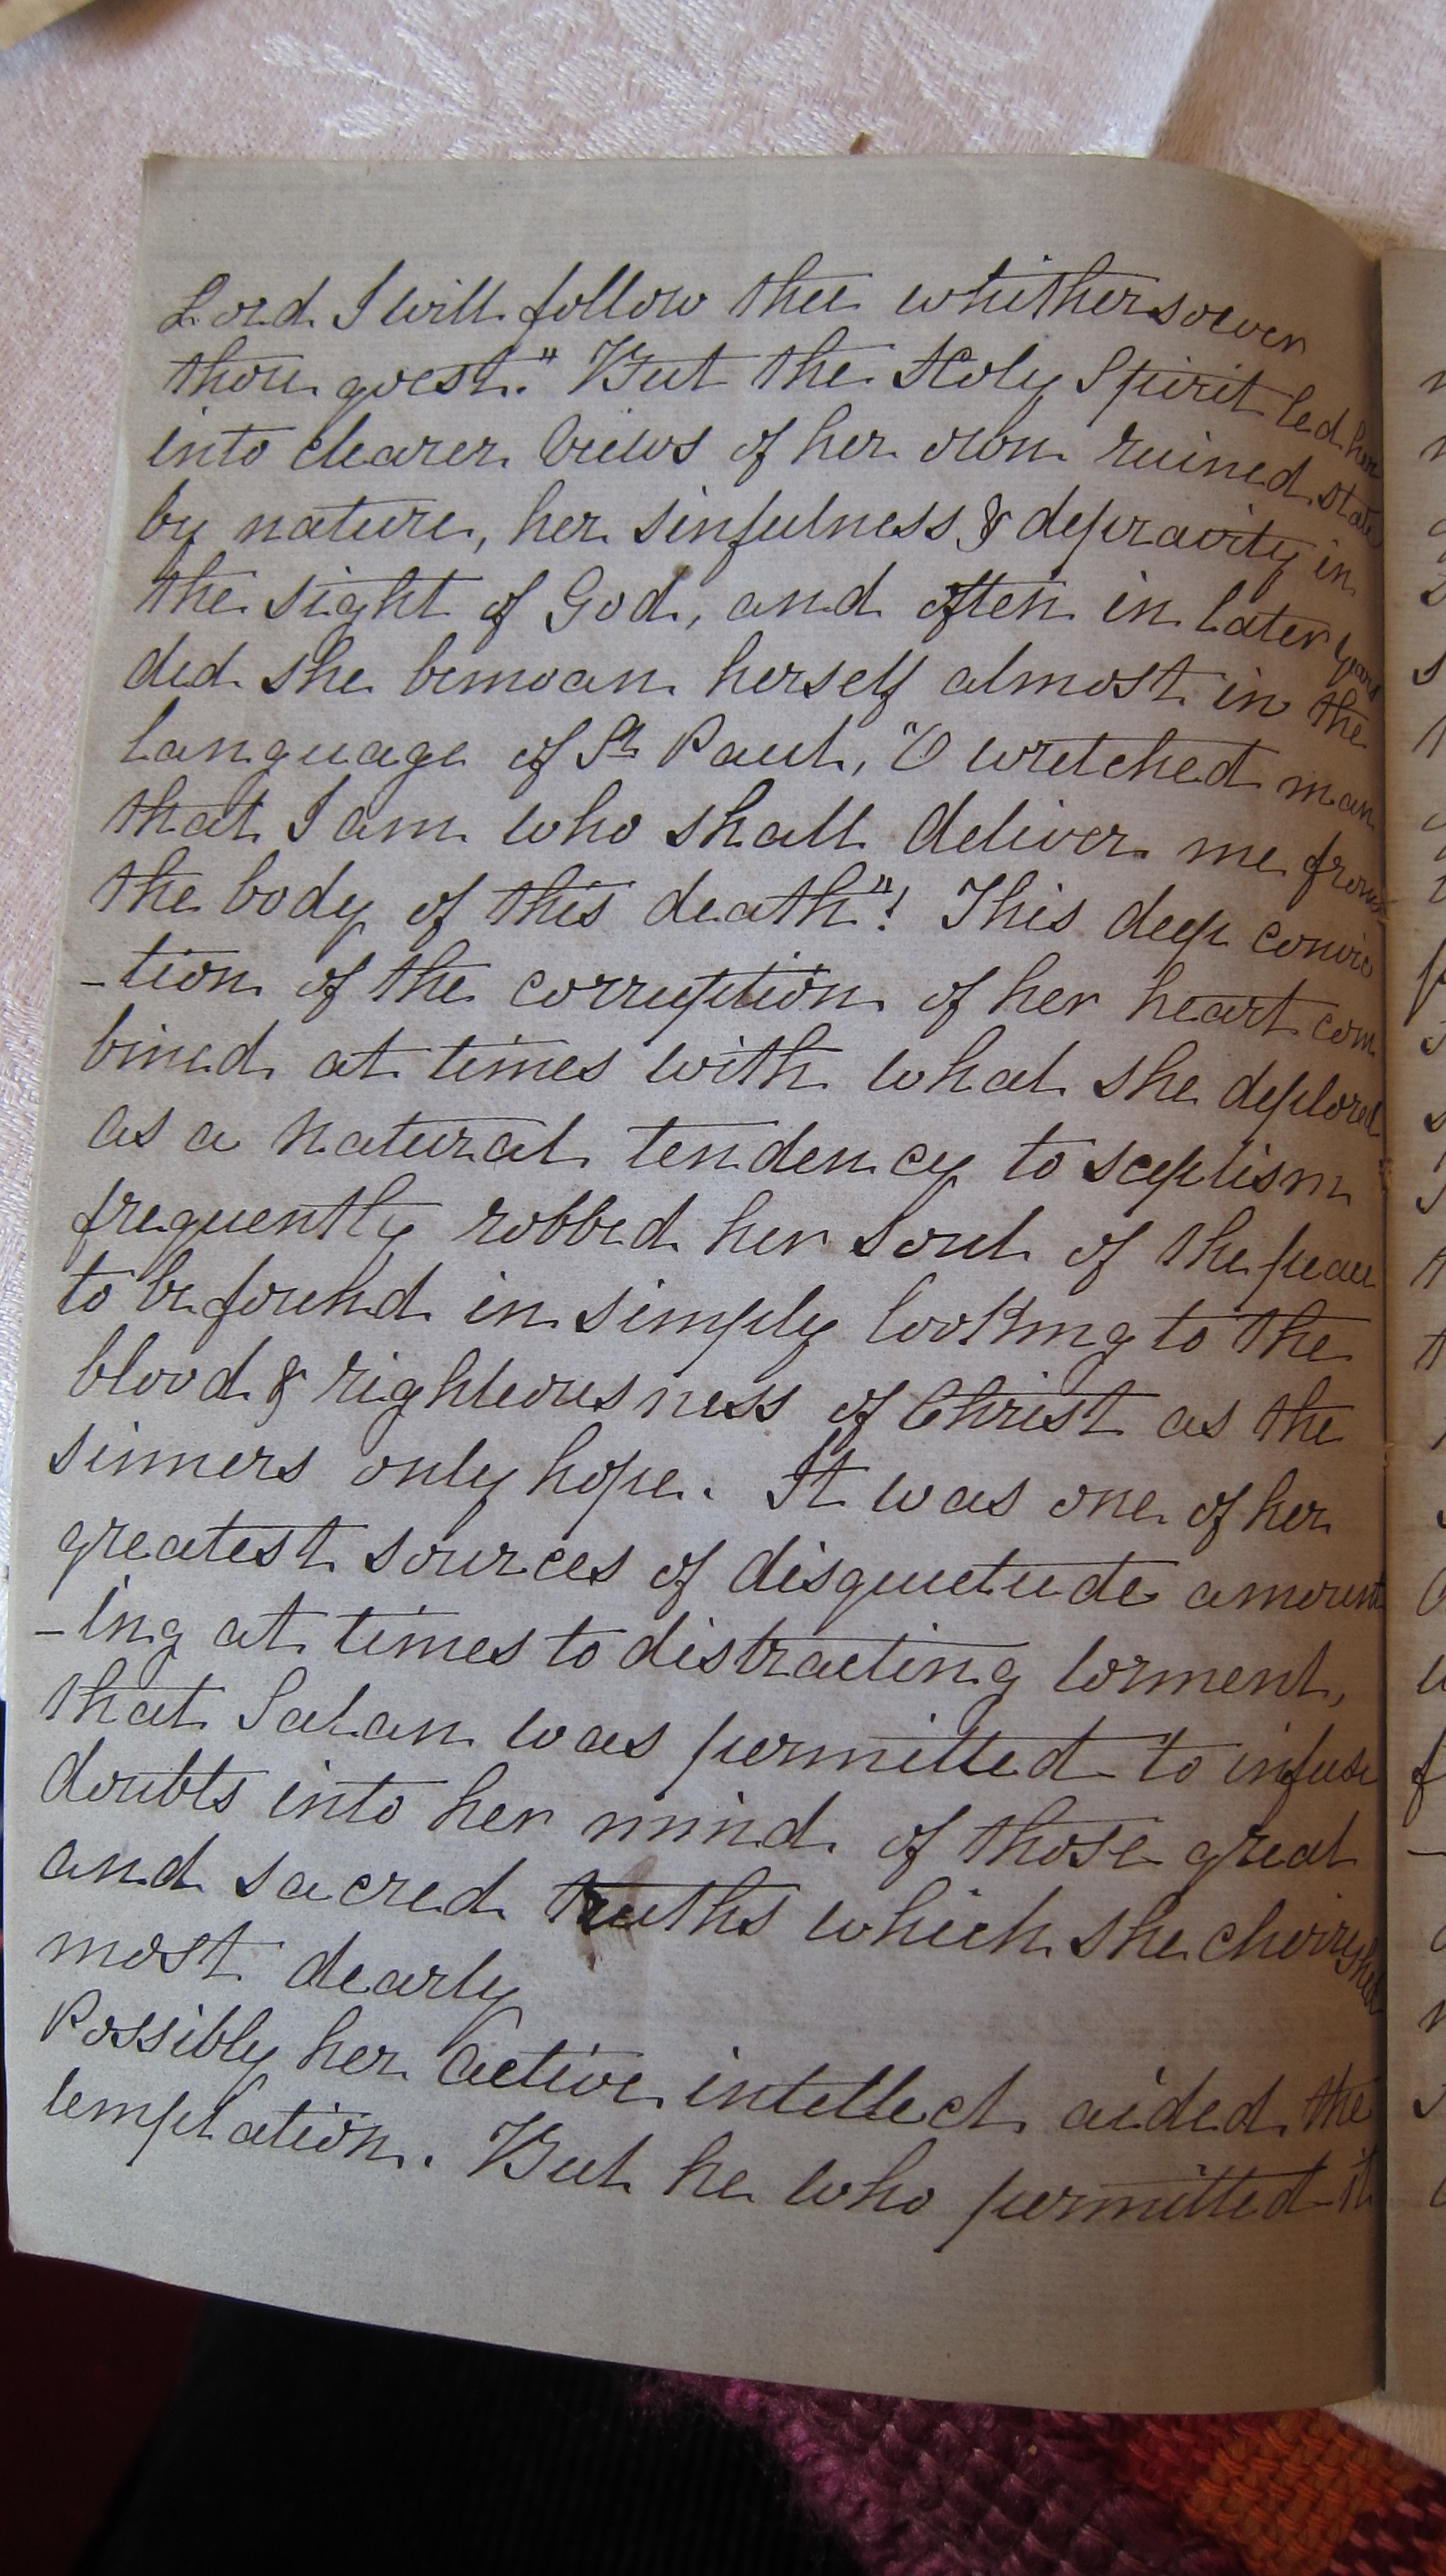 Lord I will follow thee whithersoever
thou goest." But the Holy Spirit led her
into clearer views of her own ruined state
by nature, her sinfulness & depravity in
the sight of God, and often in later years
did she bemoan herself almost in the
language of St Paul, "O wretched man
that I am who shall deliver me from
the body of this death"! This deep convic
-tion of the corruption of her heart com
bined at times with what she deplored
as a natural tendency to sceptism
frequently robbed her soul of the peace
to be found in simply looking to the
blood & righteousness of Christ as the
sinners only hope. It was one of her
greatest sources of disquietude amount
-ing at times to distracting torment,
that Satan was permitted to infuse
doubts into her mind of those great
and sacred truths which she cherished
most dearly
Possibly her active intellect aided the
temptation. But he who permitted it